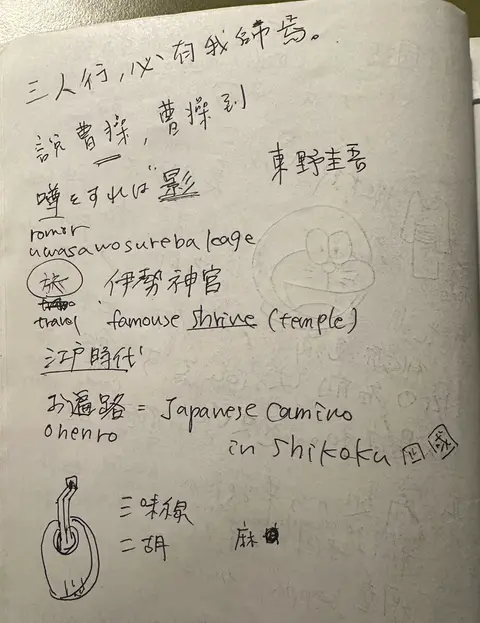 三人行,必有我師焉。
說曹操,曹操到
東野圭吾
噂をすれば"影
romor
uwasawosureba cage
旅 伊勢神宮
travel famouse shrine (temple)
江戸時代
お遍路 = Japanese Camino
ohenro in Shikoku 四
三味線
二胡 麻